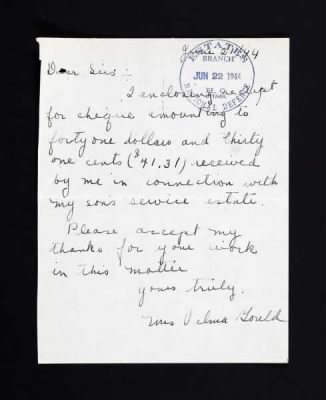 June 2 /44
ESTATES
BRANCH
JUN 22 1944
NATIONAL DEFENCE
Dear Sirs :-
I enclosing receipt
for cheque amounting to
forty one dollars and thirty
one cents ($41.31) received
by me in connection with
my son's service estate.
Please accept my
thanks for your work
in this matter
yours truly.
Mrs Velma Gould